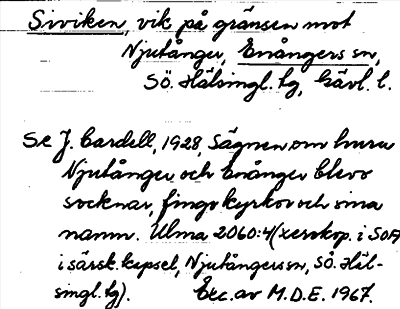 Siviken, vik på gränsen mot
Njutånger, Enångers sn,
Sö. Hälsingl. tg, Gävl. l.
Se J. Cardell, 1928, Sägnen om huru
Njutånger och Enånger blevo
socknar, fingo kyrkor och sina
namn. Ulma 2060:4 (xerokop. i SOA
i särsk. kapsel, Njutångers sn, Sö. Häl-
singl. tg). Exc. av M.D.E. 1967.